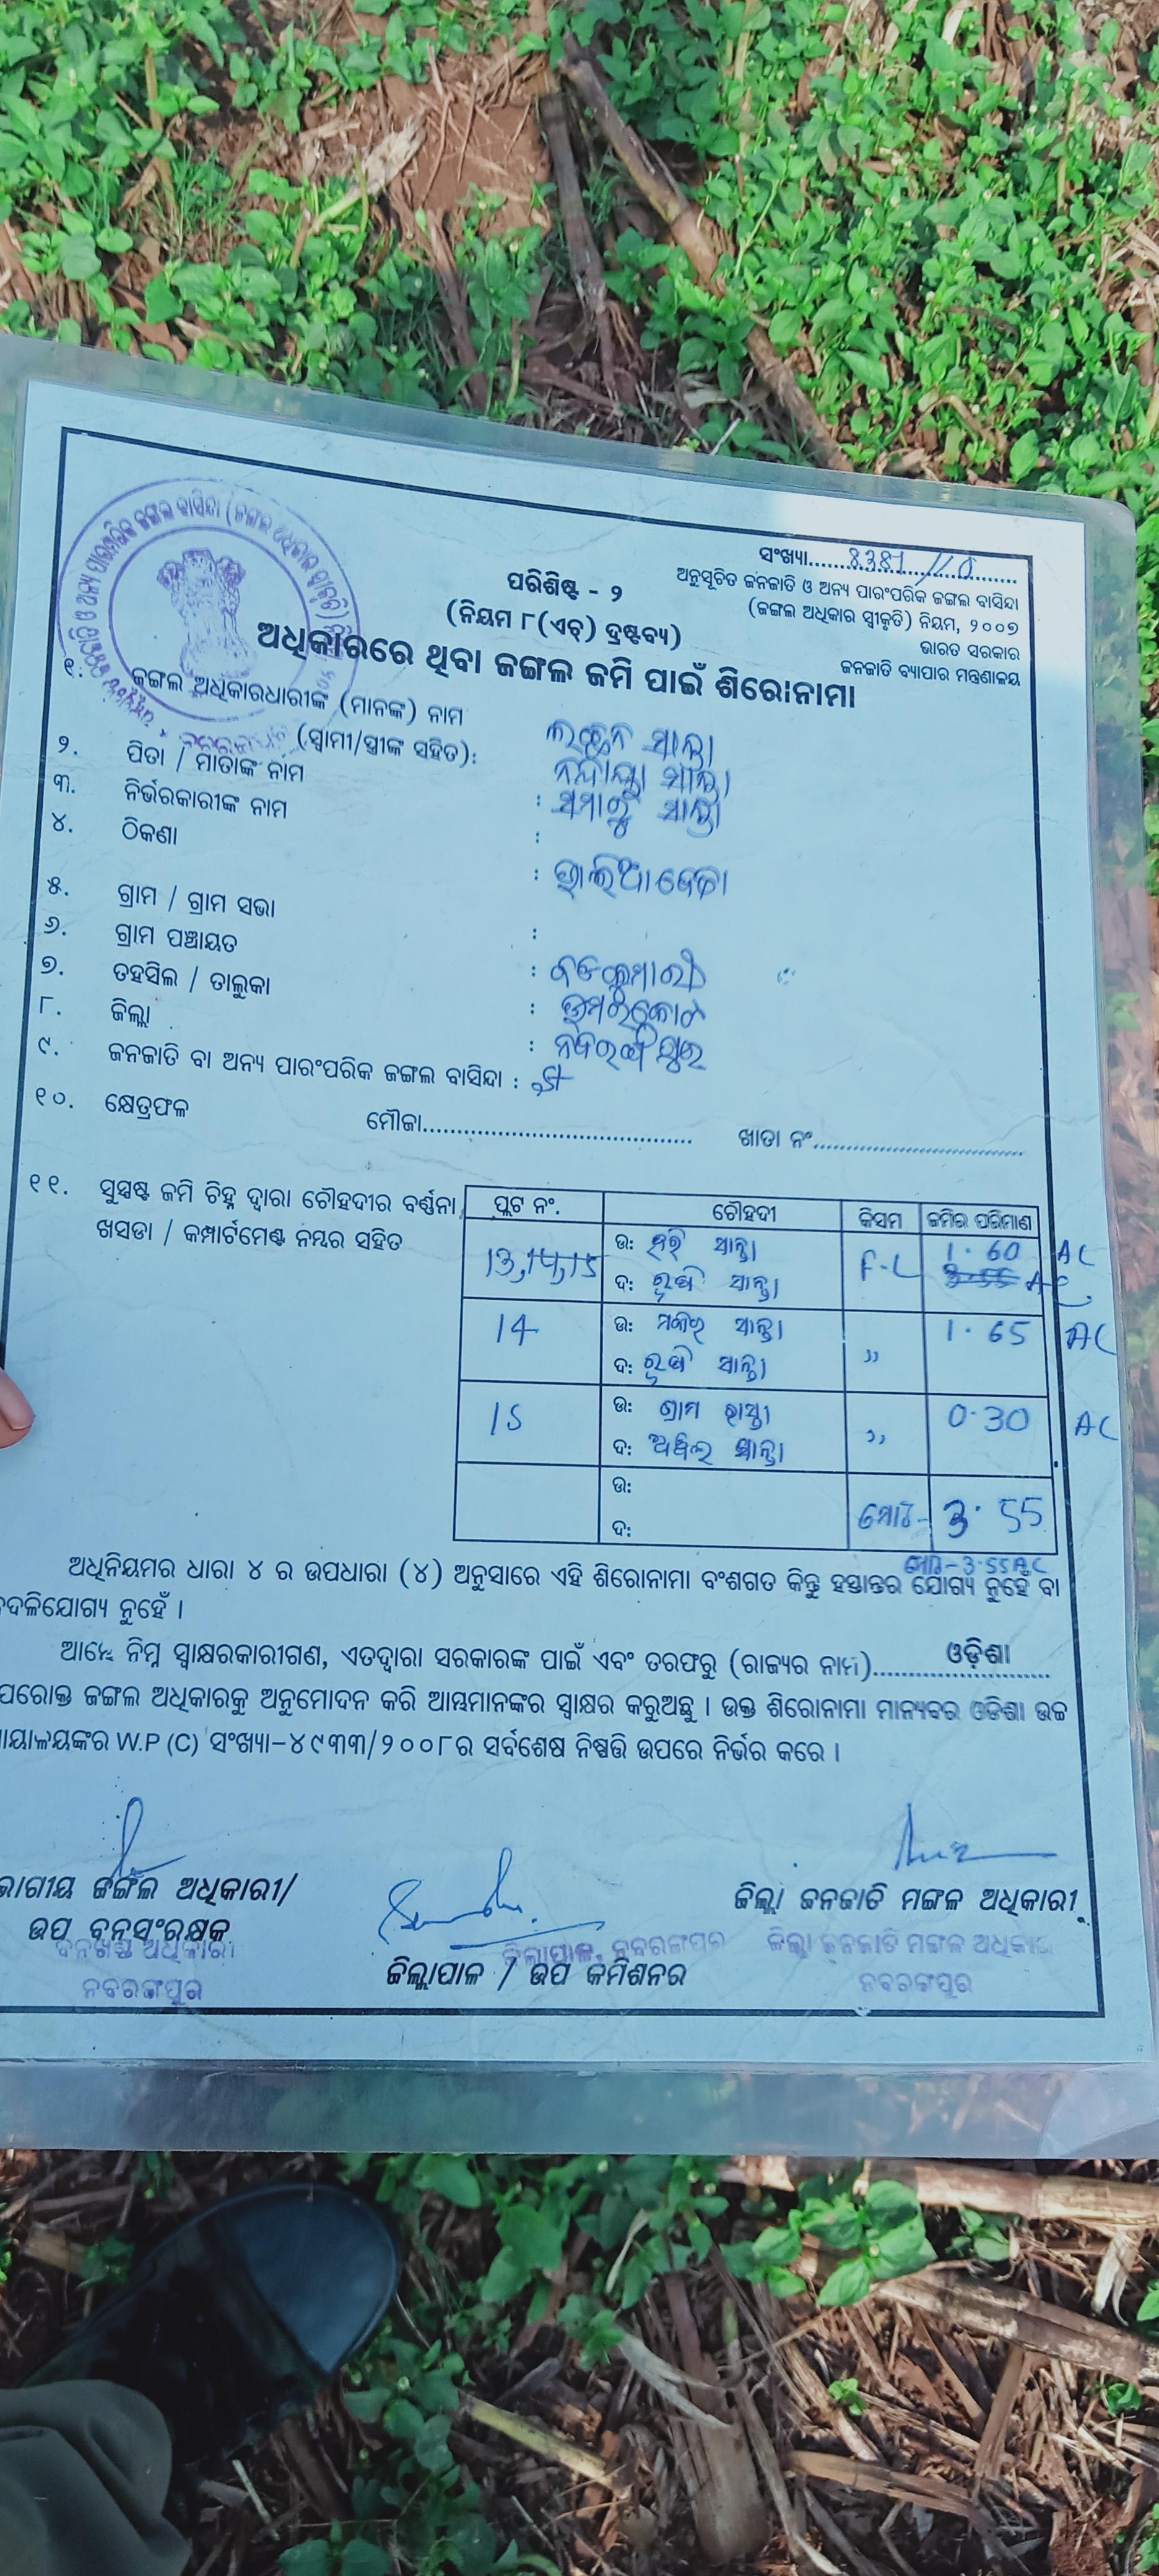 ସଂଖ୍ୟା........8381/10
ଅନୁସୂଚିତ ଜନଜାତି ଓ ଅନ୍ୟ ପାରଂପରିକ ଜଙ୍ଗଲ ବାସିନ୍ଦା
(ଜଙ୍ଗଲ ଅଧିକାର ସ୍ୱୀକୃତି) ନିୟମ, ୨୦୦୭
ଭାରତ ସରକାର
ଜନଜାତି ବ୍ୟାପାର ମନ୍ତ୍ରଣାଳୟ
ପରିଶିଷ୍ଟ - ୨
(ନିୟମ ୮(ଏଚ୍) ଦ୍ରଷ୍ଟବ୍ୟ)
ଅଧିକାରରେ ଥିବା ଜଙ୍ଗଲ ଜମି ପାଇଁ ଶିରୋନାମା
୧. ଜଙ୍ଗଲ ଅଧିକାରଧାରୀଙ୍କ (ମାନଙ୍କ) ନାମ
(ସ୍ୱାମୀ/ସ୍ତ୍ରୀଙ୍କ ସହିତ):
୨. ପିତା / ମାତାଙ୍କ ନାମ
୩. ନିର୍ଭରକାରୀଙ୍କ ନାମ :
୪. ଠିକଣା :
୫. ଗ୍ରାମ / ଗ୍ରାମ ସଭା :
୬. ଗ୍ରାମ ପଞ୍ଚାୟତ :
୭. ତହସିଲ / ତାଲୁକା : ଉମରକୋଟ
୮. ଜିଲ୍ଲା : ନବରଙ୍ଗପୁର
୯. ଜନଜାତି ବା ଅନ୍ୟ ପାରଂପରିକ ଜଙ୍ଗଲ ବାସିନ୍ଦା : ST
୧୦. କ୍ଷେତ୍ରଫଳ ମୌଜା........ ଖାତା ନଂ........
୧୧. ସୁସ୍ପଷ୍ଟ ଜମି ଚିହ୍ନ ଦ୍ୱାରା ଚୌହଦୀର ବର୍ଣ୍ଣନା
ଖସଡା / କମ୍ପାର୍ଟମେଣ୍ଟ ନମ୍ବର ସହିତ
ପ୍ଲଟ ନଂ. ଚୌହଦୀ କିସମ ଜମିର ପରିମାଣ
13,14,15 ଉ: ହରି ସାନ୍ତା F-L 1.60 AC
ଦ: ସାନ୍ତା 3.55 AC
14 ଉ: ସାନ୍ତା 1.65 AC
ଦ: ସାନ୍ତା ,,
15 ଉ: ଗ୍ରାମ ରାସ୍ତା 0.30 AC
ଦ: ସାନ୍ତା ,,
ଉ: ମୋଟ- 3.55
ଦ:
ମୋଟ-3.55AC
ଅଧିନିୟମର ଧାରା ୪ ର ଉପଧାରା (୪) ଅନୁସାରେ ଏହି ଶିରୋନାମା ବଂଶଗତ କିନ୍ତୁ ହସ୍ତାନ୍ତର ଯୋଗ୍ୟ ନୁହେଁ ବା
ବଦଳିଯୋଗ୍ୟ ନୁହେଁ ।
ଆମ୍ଭେ ନିମ୍ନ ସ୍ୱାକ୍ଷରକାରୀଗଣ, ଏତଦ୍ୱାରା ସରକାରଙ୍କ ପାଇଁ ଏବଂ ତରଫରୁ (ରାଜ୍ୟର ନାମ)........ଓଡ଼ିଶା........
ପରୋକ୍ତ ଜଙ୍ଗଲ ଅଧିକାରକୁ ଅନୁମୋଦନ କରି ଆମ୍ଭମାନଙ୍କର ସ୍ୱାକ୍ଷର କରୁଅଛୁ । ଉକ୍ତ ଶିରୋନାମା ମାନ୍ୟବର ଓଡିଶା ଉଚ୍ଚ
ନ୍ୟାୟାଳୟଙ୍କର W.P (C) ସଂଖ୍ୟା-୪୯୩୩/୨୦୦୮ର ସର୍ବଶେଷ ନିଷ୍ପତ୍ତି ଉପରେ ନିର୍ଭର କରେ ।
ଭାଗୀୟ ଜଙ୍ଗଲ ଅଧିକାରୀ/
ଉପ ବନସଂରକ୍ଷକ
ବନଖଣ୍ଡ ଅଧିକାରୀ
ନବରଙ୍ଗପୁର
ଜିଲ୍ଲାପାଳ, ନବରଙ୍ଗପୁର
ଜିଲ୍ଲାପାଳ / ଉପ କମିଶନର
ଜିଲ୍ଲା ଜନଜାତି ମଙ୍ଗଳ ଅଧିକାରୀ
ଜିଲ୍ଲା ଜନଜାତି ମଙ୍ଗଳ ଅଧିକାରୀ
ନବରଙ୍ଗପୁର